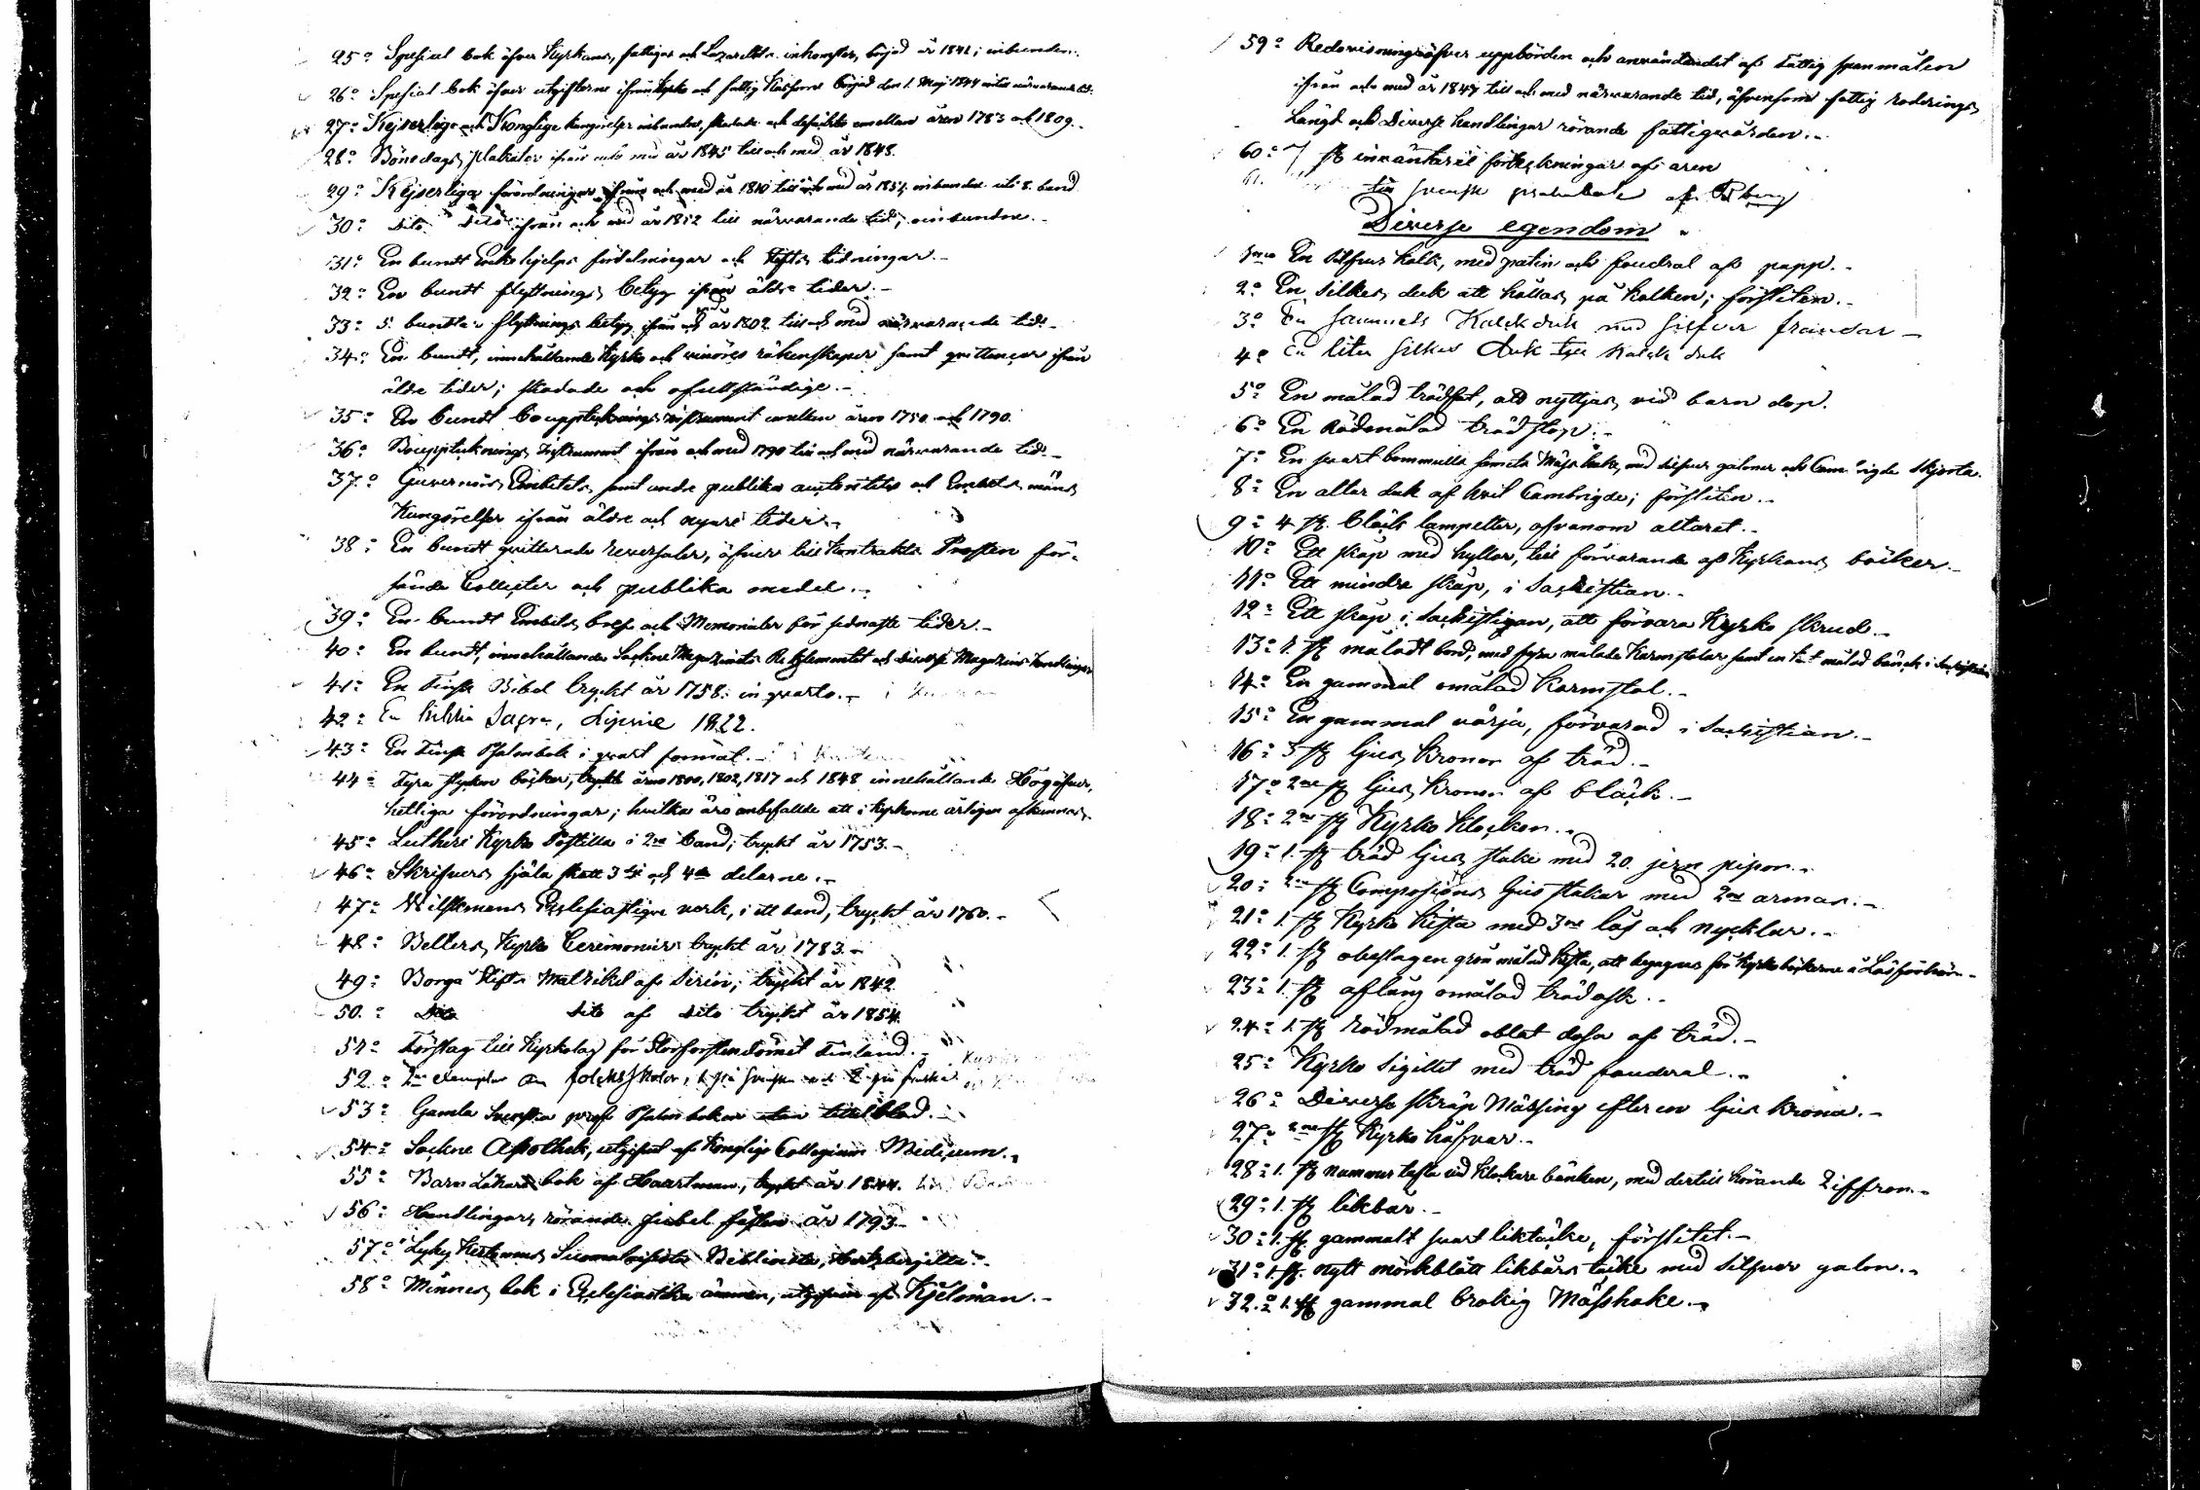 25:o Special bok öfver Kyrkans, fattiges och Lazaretts inkomster, börjad år 1841; inbunden.
26:o Special bok öfver utgifterne ifrån Kyrko och fattig Kassorne börjad den 1. Maj 1844 intill närvarande tid.
27:o Kejserliga och Konglige kungörelser inbundna, skadade och defekta emellan åren 1783 och 1809.
28:o Bönedags plakater ifrån och med år 1845 till och med år 1848.
29:o Kejserliga förordningar ifrån och med år 1810 till och med år 1851. inbundne uti 8. band
30:o Dito Dito ifrån och med år 1852 till närvarande tid, oinbundne.
31:o En bundt Enkehjelps fördelningar och Stifts tidningar.
32:o En bundt flyttnings betyg ifrån äldre tider.
33:o 5. bundtar flyttnings betyg ifrån och med år 1802 till och med närvarande tid.
34:o En bundt, innehållande Kyrko och räkenskaper samt qvittencer ifrån
äldre tider; skadade och ofullständige.
35:o En bundt bouppteknings instrument emellan åren 1750. och 1790.
36:o Bouppteknings Instrument ifrån och med 1790 till och med närvarande tid.
37:o Guvernörs Embetets samt andre publika autoriteter och Embets mäns
Kungörelser ifrån äldre och nyare tider.
38:o En bundt qvitterade reversaler, öfver till Kontrakts Prosten för-
sände Collecter och publika medel.
39:o En bundt Embets bref och Memorialer för sednaste tider.
40:o En bundt, innehållande Sockne Magazinets Reglementet och diverse Magazins handlingar
41:o En Finsk Bibel tryckt år 1758. in quarto. i
42:o En biblia Sacra, Lipsiæ 1822.
43:o En Finsk Psalmbok i qvart format. i
44:o Fyra stycken böcker, tryckte åren 1800, 1802, 1817 och 1848 innehållande Högöfver,
hetliga förordningar; hvilka äro anbefallde att i kyrkorne årligen afkunnas.
45:o Lutheri Kyrko Postilla i 2ne band; tryckt år 1753.
46:o Skrifvers själa skatt 3dje och 4de delarne.
47:o Wilskmans Eclesiastique verk, i ett band, tryckt år 1760.
48:o Bellers Kyrko Ceremonier tryckt år 1783.
49:o Borgå Stifts Matrikel af Sirén; tryckt år 1842
50:o Dito Dito af Dito tryckt år 1854.
51:o Förslag till Kyrkolag för Storfurstendömet Finland.
52:o 2ne exemplar om folckskolor, 1. på svenska och 2. på finska.
53:o Gamla Svenska Psalmboken utan titelblad.
54:o Sockne Apothek, utgifvet af Konglige Collegium Medicum.
55:o Barn Läkare bok af Haartman, tryckt år 1844.
56:o Handlingar rörande Jubel festen år 1793
57:o Lyhy Kertomus Suomalaisesta Bibliasta, Hertzbergilta.
58:o Minnes bok i Eclesiastika ämnen, utgifven af Kjelman.
59:o Redovisning öfver uppbörden och användandet af Fattig spanmålen
ifrån och med år 1847 till och med närvarande tid, äfvensom fattig roderings
Längd och Diverse handlingar rörande fattigvården.
60:o 7 st inventarii förtekningar af åren
61. En svensk af
Diverse egendom.
1mo En Silfver kalk, med patén och foudral af papp.
2:o En Silkes duk att hållas på kalken; försliten.
3:o En sammets Kalckduk med silfver frandsar
4:o En liten silkes duk kalck duk
5:o En målad trädfat, att nyttjas vid barn dop.
6:o En Rödmålad träd stop.
7:o En svart bommulls sammets Mässhake, med silfver galoner och Cambrigde skjorta.
8:o En altar duk af hvit Cambrigde; försliten.
9:o 4 st. bläck lampetter, ofvanom altaret.
10:o Ett skåp med hyllor, till förvarande af Kyrkans böcker.
11:o Ett mindre skåp, i Sackristian.
12:o Ett skåp i Sackristian, att förvara Kyrko skrud.
13:o 1. st måladt bord, med fyra målade Karmstolar samt en målad bänck i Sackristian
14:o En gammal omålad Karmstol.
15:o En gammal värja, förvarad i Sackristian.
16:o 3 st ljus kronor af träd.
17:o 2ne st ljus kronor af bläck.
18:o 2ne st Kyrko klockor.
19:o 1. st träd ljus stake med 20. jern pipor.
20:o 2ne st Compositions ljus stakar med 2ne armar.
21:o 1. st Kyrko kista med 3ne lås och nycklar.
22:o 1. st obeslagen grön målad kista, att begagnas för kyrkoböckerne å Läsförhören.
23:o 1. st aflång omålad trädask.
24:o 1. st rödmålad oblat dosa af träd.
25:o Kyrko Sigillet med träd fouderal.
26:o Diverse skräp Mässing efter en ljus krona.
27:o 2ne st Kyrko håfvar.
28:o 1. st nummer tafla vid Klockare bänken, med dertill hörande Ziffror.
29:o 1. st likbår.
30:o 1. st gammalt svart liktäcke, förslitet.
31:o 1. st nytt mörkblått likbårs täcke med silfver galon.
32:o 1. st gammal brokig Mässhake.